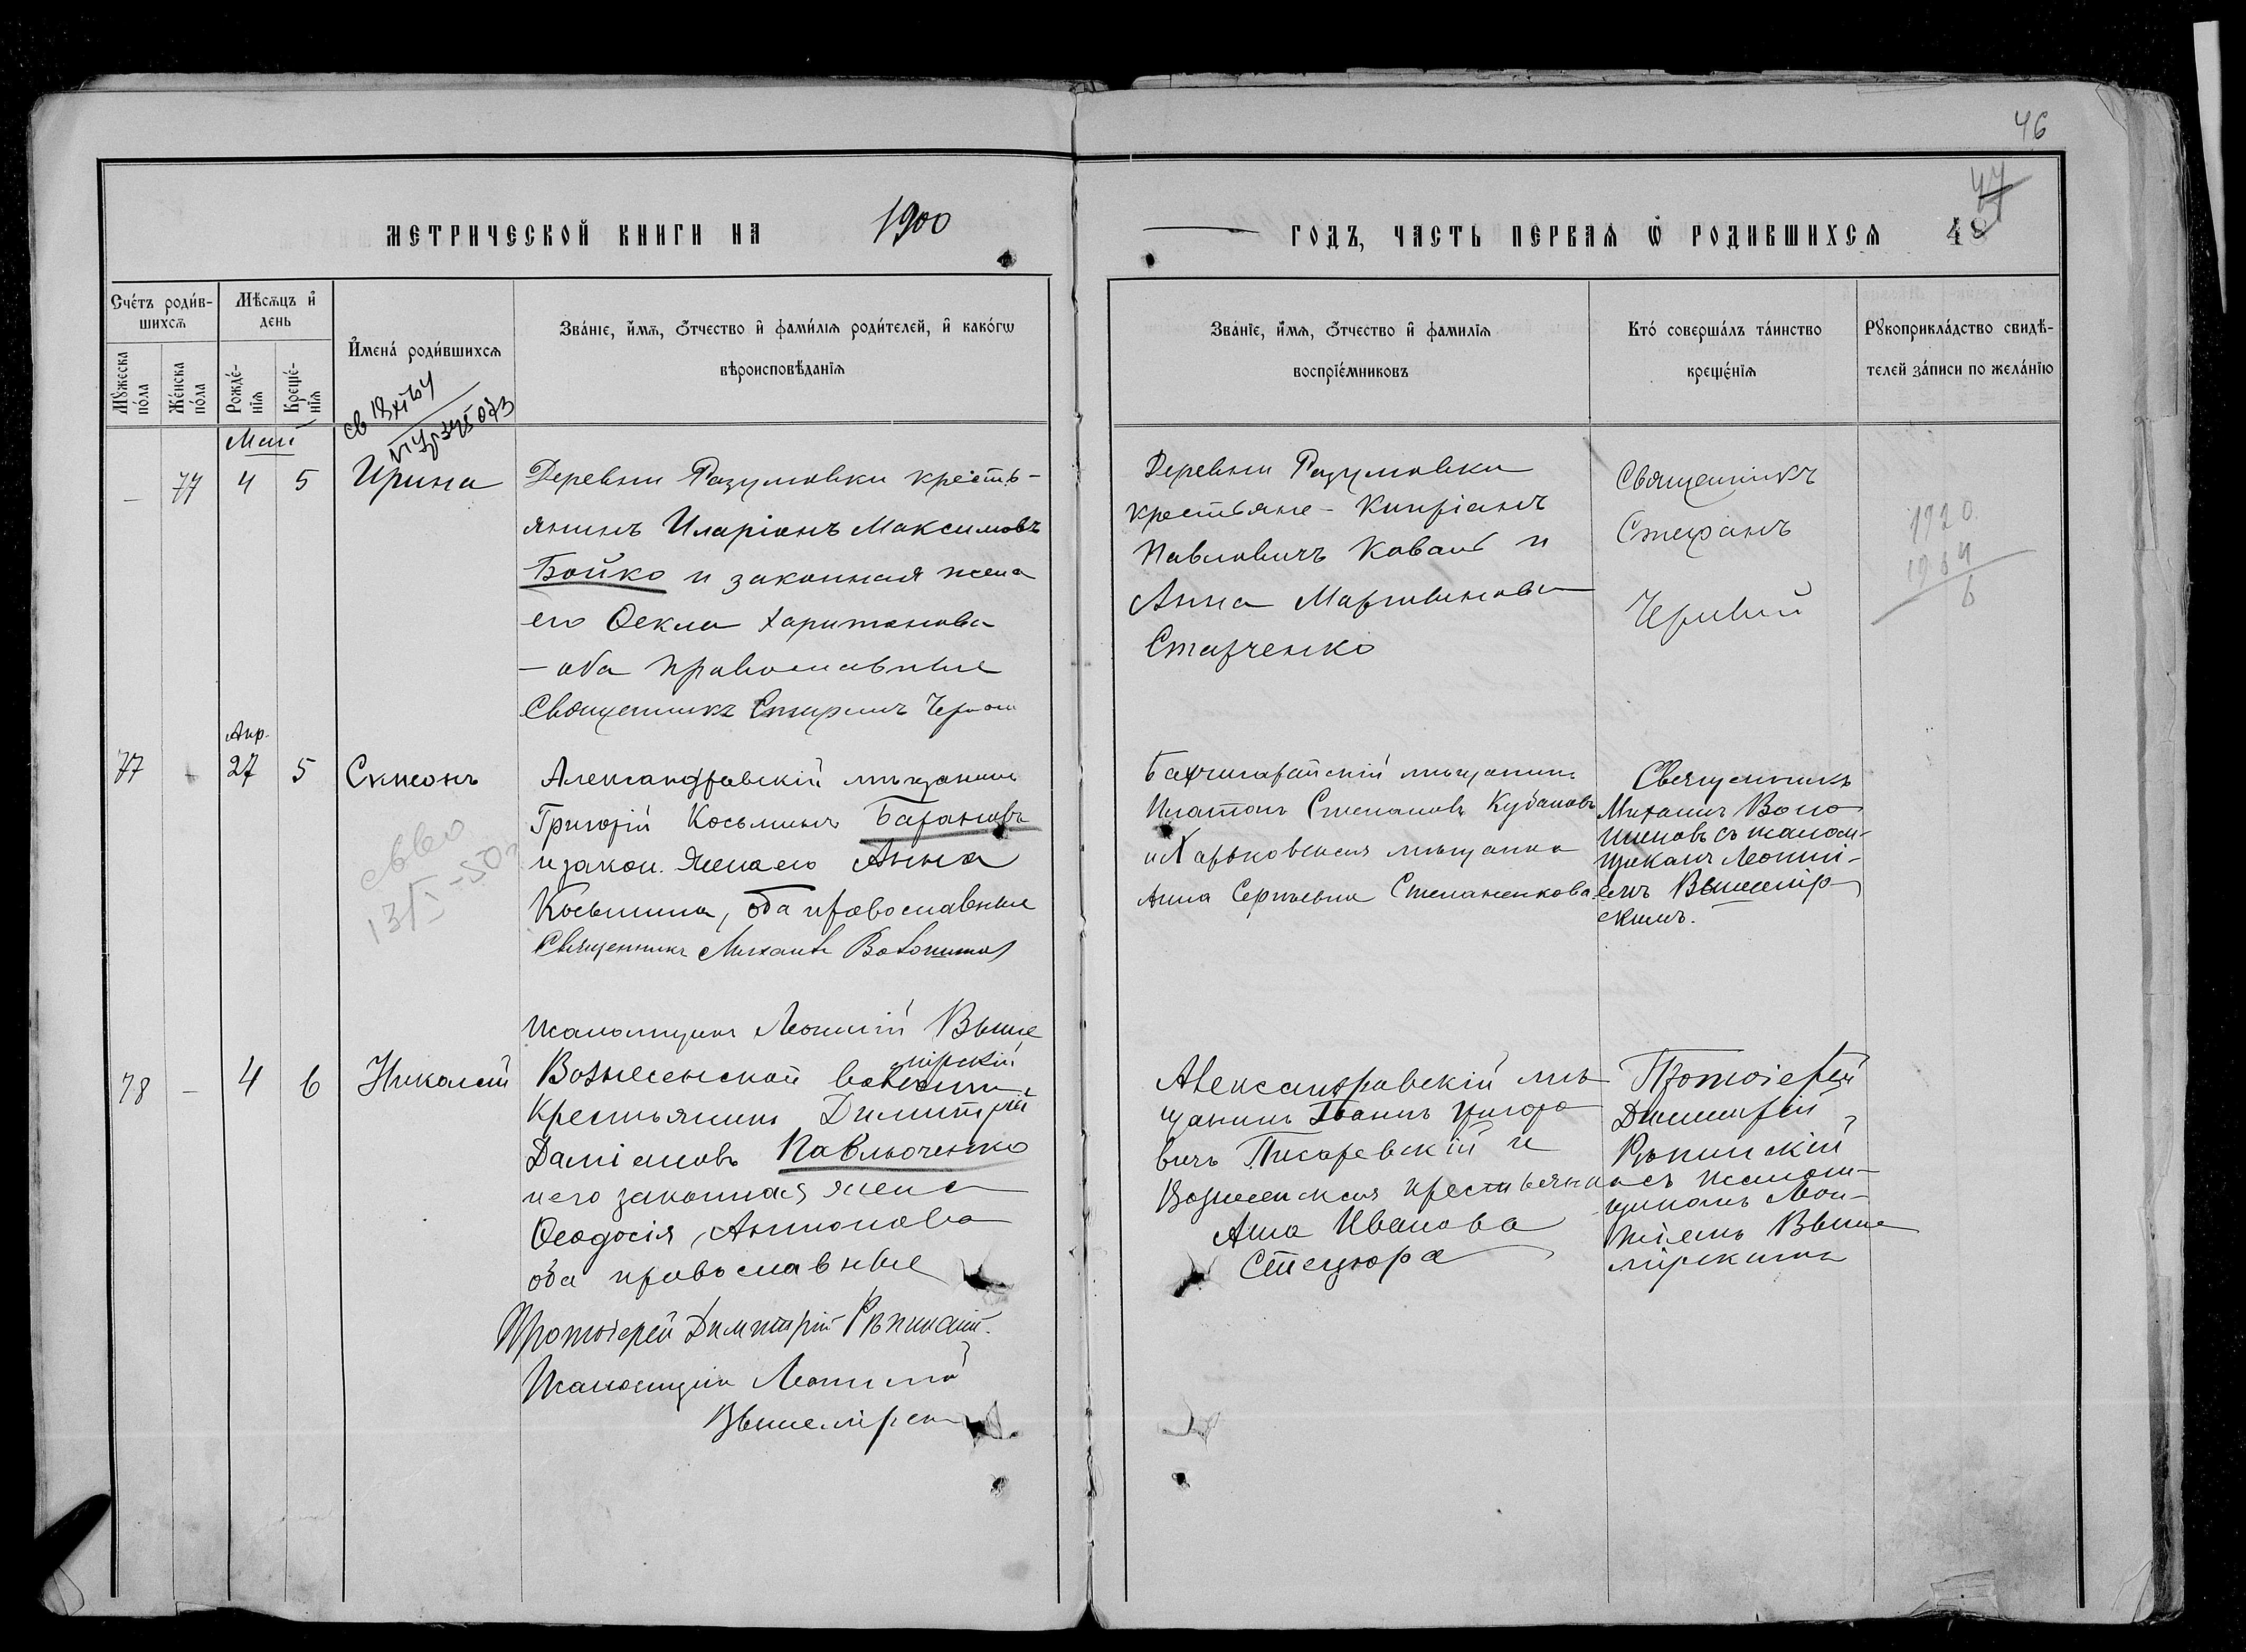 46
47
48
МЕТРИЧЕСКОЙ КНИГИ НА 1900
ГОДЪ, ЧАСТЬ ПЕРВАЯ Ѡ РОДИВШИХСЯ
Счетъ родив-
шихся
Мѣсяцъ и
день
Имена родившихся
Званіе, имя, отчество и фамилія родителей, и какогѡ
вѣроисповѣданія
Мужеска
пола
Женска
пола
Рожде-
нія
Креще-
нія
Званіе, имя, отчество и фамилія
воспріемниковъ
Кто совершалъ таинство
крещенія
Рукоприкладство свидѣ-
телей записи по желанію
Май
— 77 4 5 Ирина
Деревни Разумовки кресть-
янинъ Иларіонъ Максимовъ
Бойко и законная жена
его Ѳекла Харитонова
— оба православные
Священникъ Стефанъ
Деревни Разумовки
крестьяне - Кипріанъ
Павловичъ Коваль и
Анна Мартинова
Старченко
Священникъ
Стефанъ
1920
1964
6
Апр.
77 - 27 5 Симонъ
Александровскій мѣщанинъ
Григорій Косьминъ Барановъ
и закон. жена его Анна
Косьмина, оба православные
Священникъ Михаилъ
Псаломщикъ Леонтій Выше
мірскій
Бахчисарайскій мѣщанинъ
Платонъ Степановъ Кубановъ
и Харьковская мѣщанка
Анна Сергѣевна Степаненкова
Священникъ
Михаилъ Воло
шиновъ съ псалом-
щикомъ Леонті-
емъ Вышемір-
скимъ.
78 - 4 6 Николай
Вознесенской волости
Крестьянинъ Димитрій
Даміановъ Павлюченко
и его законная жена
Ѳеодосія Антонова
оба православные
Протоіерей Димитрій Рѣпинскій.
Псаломщикъ Леонтій
Вышемірскій
Александровскій мѣ-
щанинъ Іванъ Григоро
вичъ Писаревскій и
Вознесенская крестьянка
Анна Иванова
Стецюра
Протоіерей
Димитрій
Рѣпинскій
съ псалом-
щикомъ Леон-
тіемъ Выше
мірскимъ